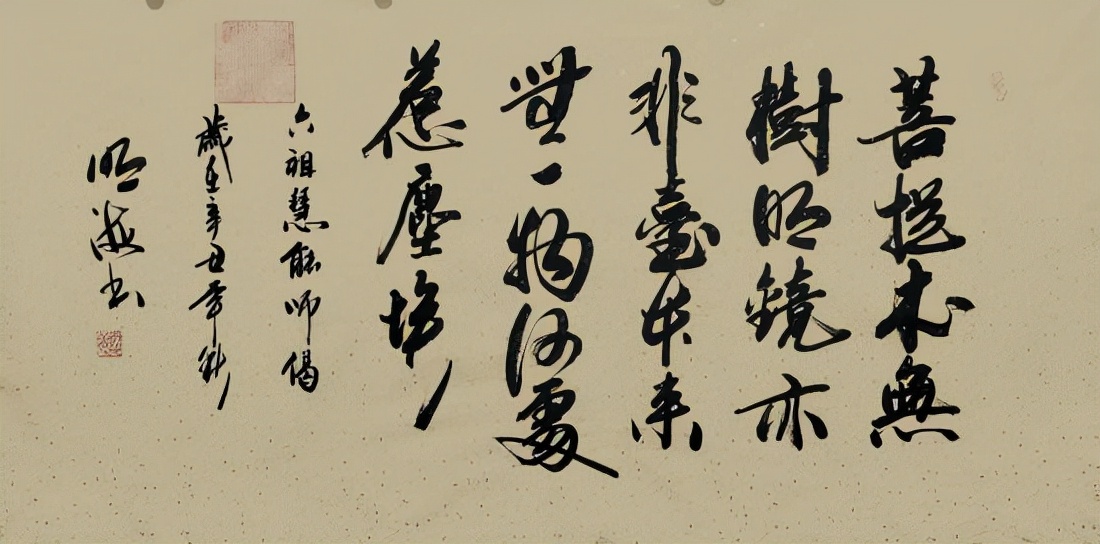 菩提本無
樹明鏡亦
非臺本来
無一物何處
惹塵埃
六祖慧能師偈
歲在辛丑年秋
明海书